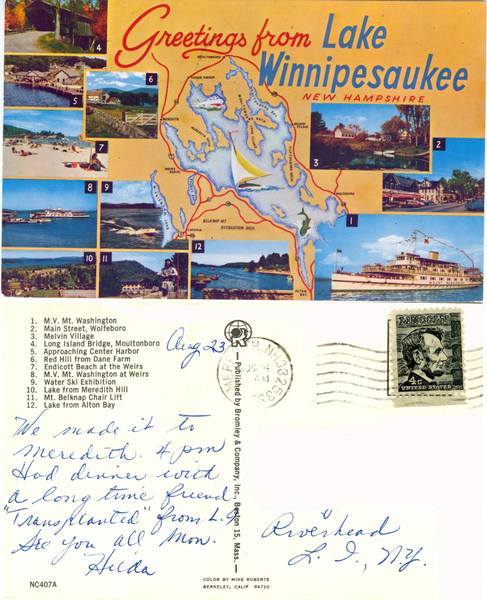 Greetings from Lake
Winnipesaukee
NEW HAMPSHIRE
4
5
6
7
3
2
8
9
1
10
11
12
MEREDITH
WEIRS BEACH
LACONIA
BELKNAP MT.
RECREATION AREA
ALTON BAY
1. M.V. Mt. Washington
2. Main Street, Wolfeboro
3. Melvin Village
4. Long Island Bridge, Moultonboro
5. Approaching Center Harbor
6. Red Hill from Dane Farm
7. Endicott Beach at the Weirs
8. M.V. Mt. Washington at Weirs
9. Water Ski Exhibition
10. Lake from Meredith Hill
11. Mt. Belknap Chair Lift
12. Lake from Alton Bay
Aug 23
AM
4c
UNITED STATES
We made it to
Meredith. 4 pm
Had dinner with
a long time friend
"Transplanted" from L.I.
See you all Mon.
Hilda
Riverhead
L. I., N.Y.
— Published by Bromley & Company, Inc., Boston 15, Mass. —
NC407A
COLOR BY MIKE ROBERTS
BERKELEY, CALIF 94710